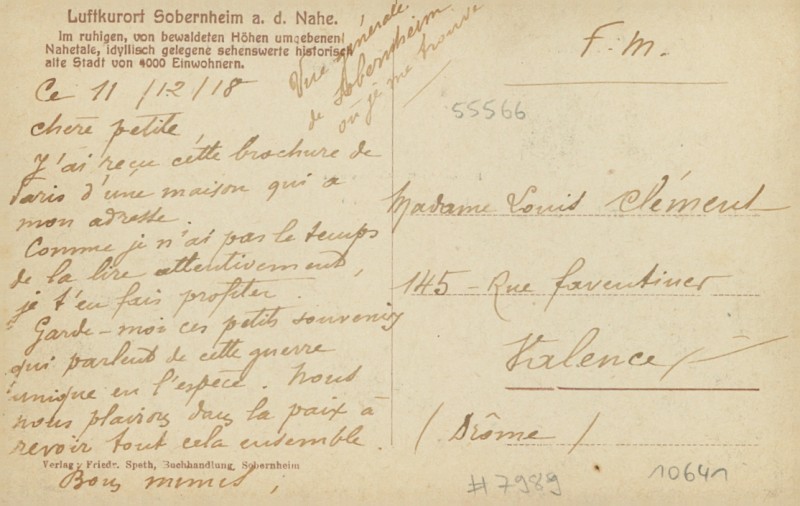 Luftkurort Sobernheim a. d. Nahe.
Im ruhigen, von bewaldeten Höhen umgebenen
Nahetale, idyllisch gelegene sehenswerte historisch
alte Stadt von 4000 Einwohnern.
Vue générale
de Sobernheim
où je me trouve
Ce 11/12/18
chère petite,
J'ai reçu cette brochure de
Paris d'une maison qui a
mon adresse.
Comme je n'ai pas le temps
de la lire attentivement,
je t'en fais profiter.
Garde-moi ces petits souvenirs
qui parlent de cette guerre
unique en l'espèce. Nous
nous plairons dans la paix à
revoir tout cela ensemble.
Verlag v. Friedr. Speth, Buchhandlung, Sobernheim
Bons mimes,
F. M.
55566
Madame Louis Clément
145 - Rue faventines
Valence
(Drôme)
#7989
10641